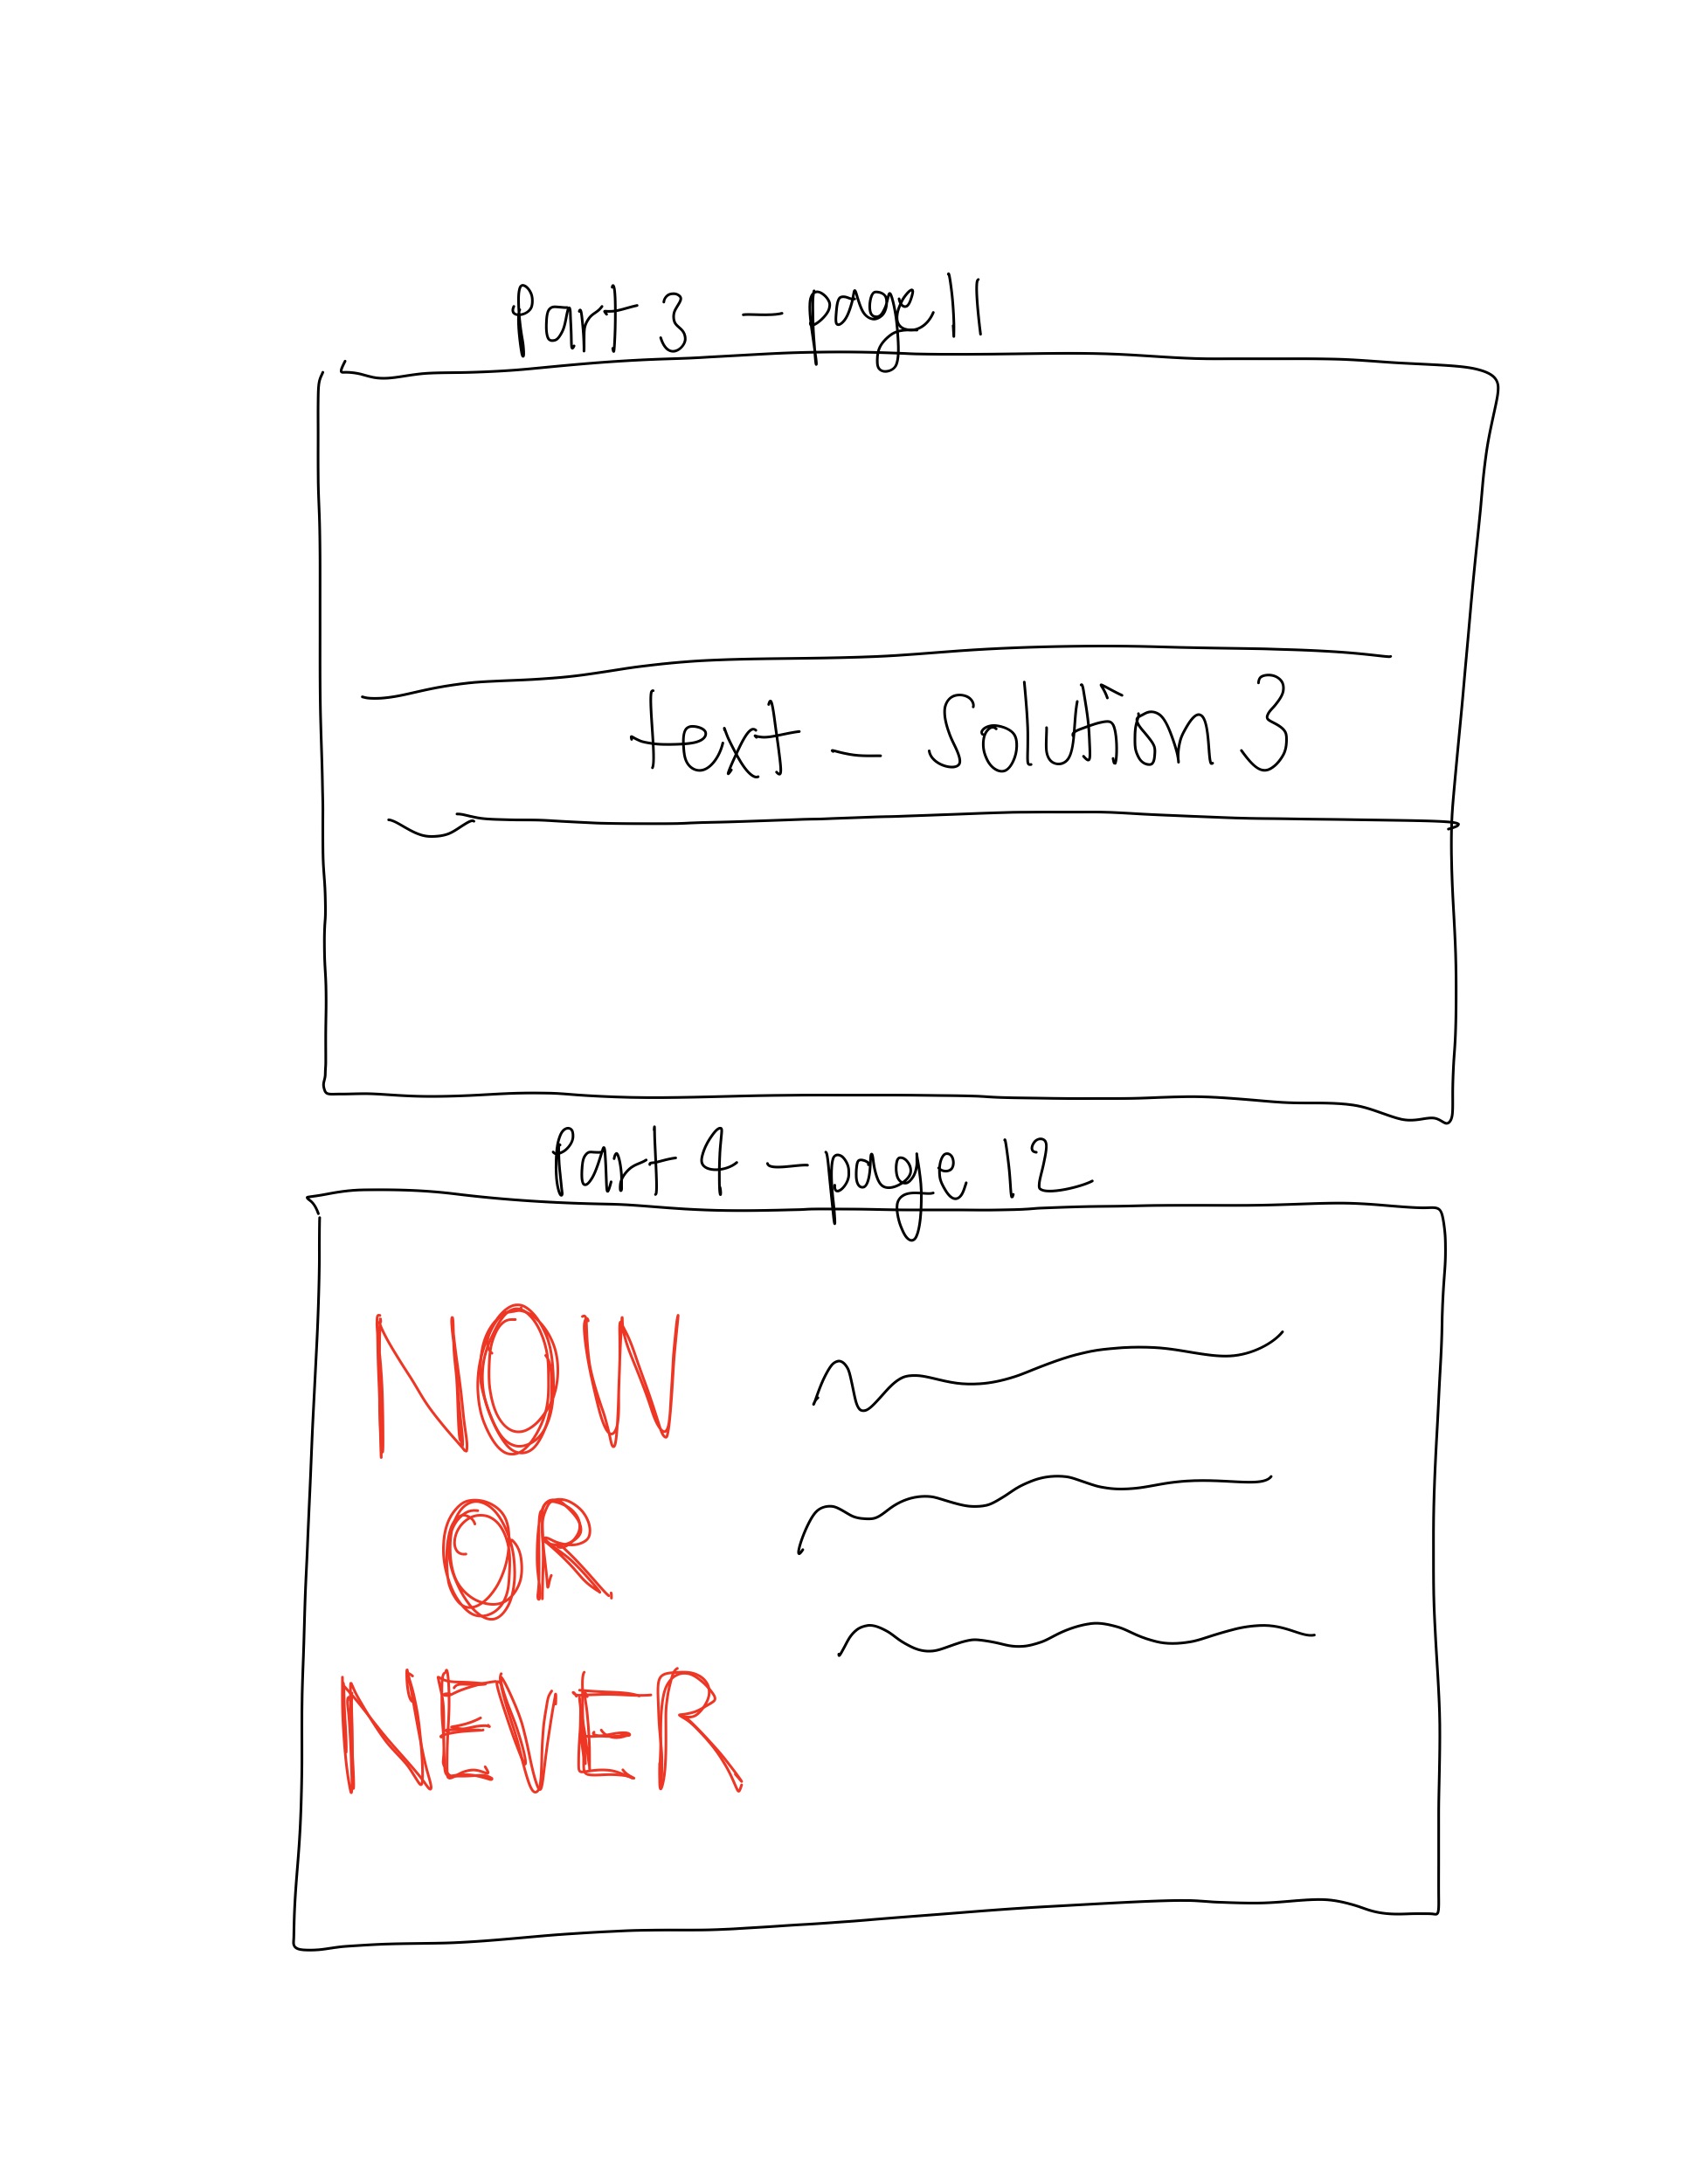 Part 3 - page 11
text - Solution 3
Part 4 - page 12
NOW
OR
NEVER